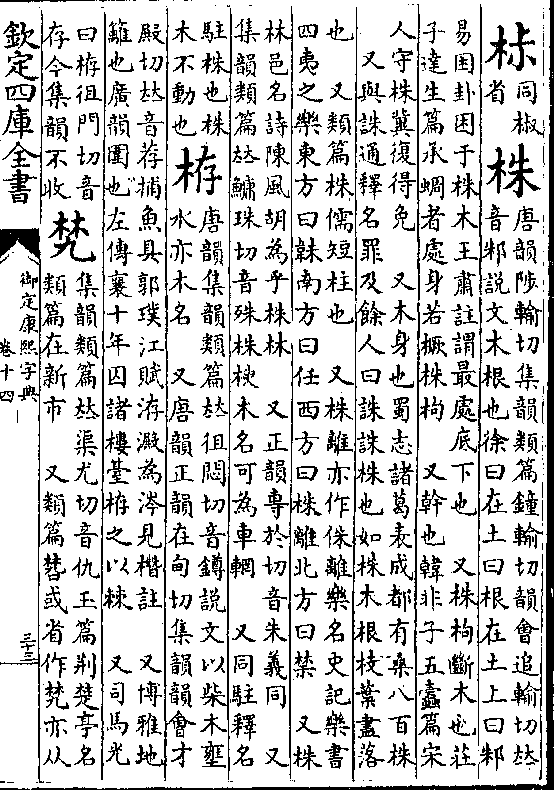 𣏾
同椒
省
株
唐韻陟輸切集韻類篇鐘輸切韻會追輸切𠀤
音邾說文木根也徐曰在土曰根在土上曰邾
易困卦困于株木王肅註謂最處底下也 又株枸斷木也莊
子達生篇承蜩者處身若橛株枸 又幹也韓非子五蠹篇宋
人守株冀復得免 又木身也蜀志諸葛表成都有桑八百株
又與誅通釋名罪及餘人曰誅誅株也如株木根枝葉盡落
也 又類篇株儒短柱也 又株離亦作侏離樂名史記樂書
四夷之樂東方曰韎南方曰任西方曰株離北方曰禁 又株
林邑名詩陳風胡為乎株林 又正韻專於切音朱義同 又
集韻類篇𠀤鱅珠切音殊株樕木名可為車輞 又同駐釋名
駐株也株
木不動也
栫
唐韻集韻類篇𠀤徂悶切音鐏說文以柴木壅
水亦木名 又唐韻正韻在甸切集韻韻會才
殿切𠀤音荐捕魚具郭璞江賦洊澱為涔見橬註 又博雅地
籬也廣韻圍也左傳襄十年囚諸樓臺栫之以棘 又司馬光
曰栫徂門切音
存今集韻不收
梵
集韻類篇𠀤渠尤切音仇玉篇荆楚亭名
類篇在新市 又類篇或省作梵亦从
欽定四庫全書
御定康熙字典
卷十四
三十三